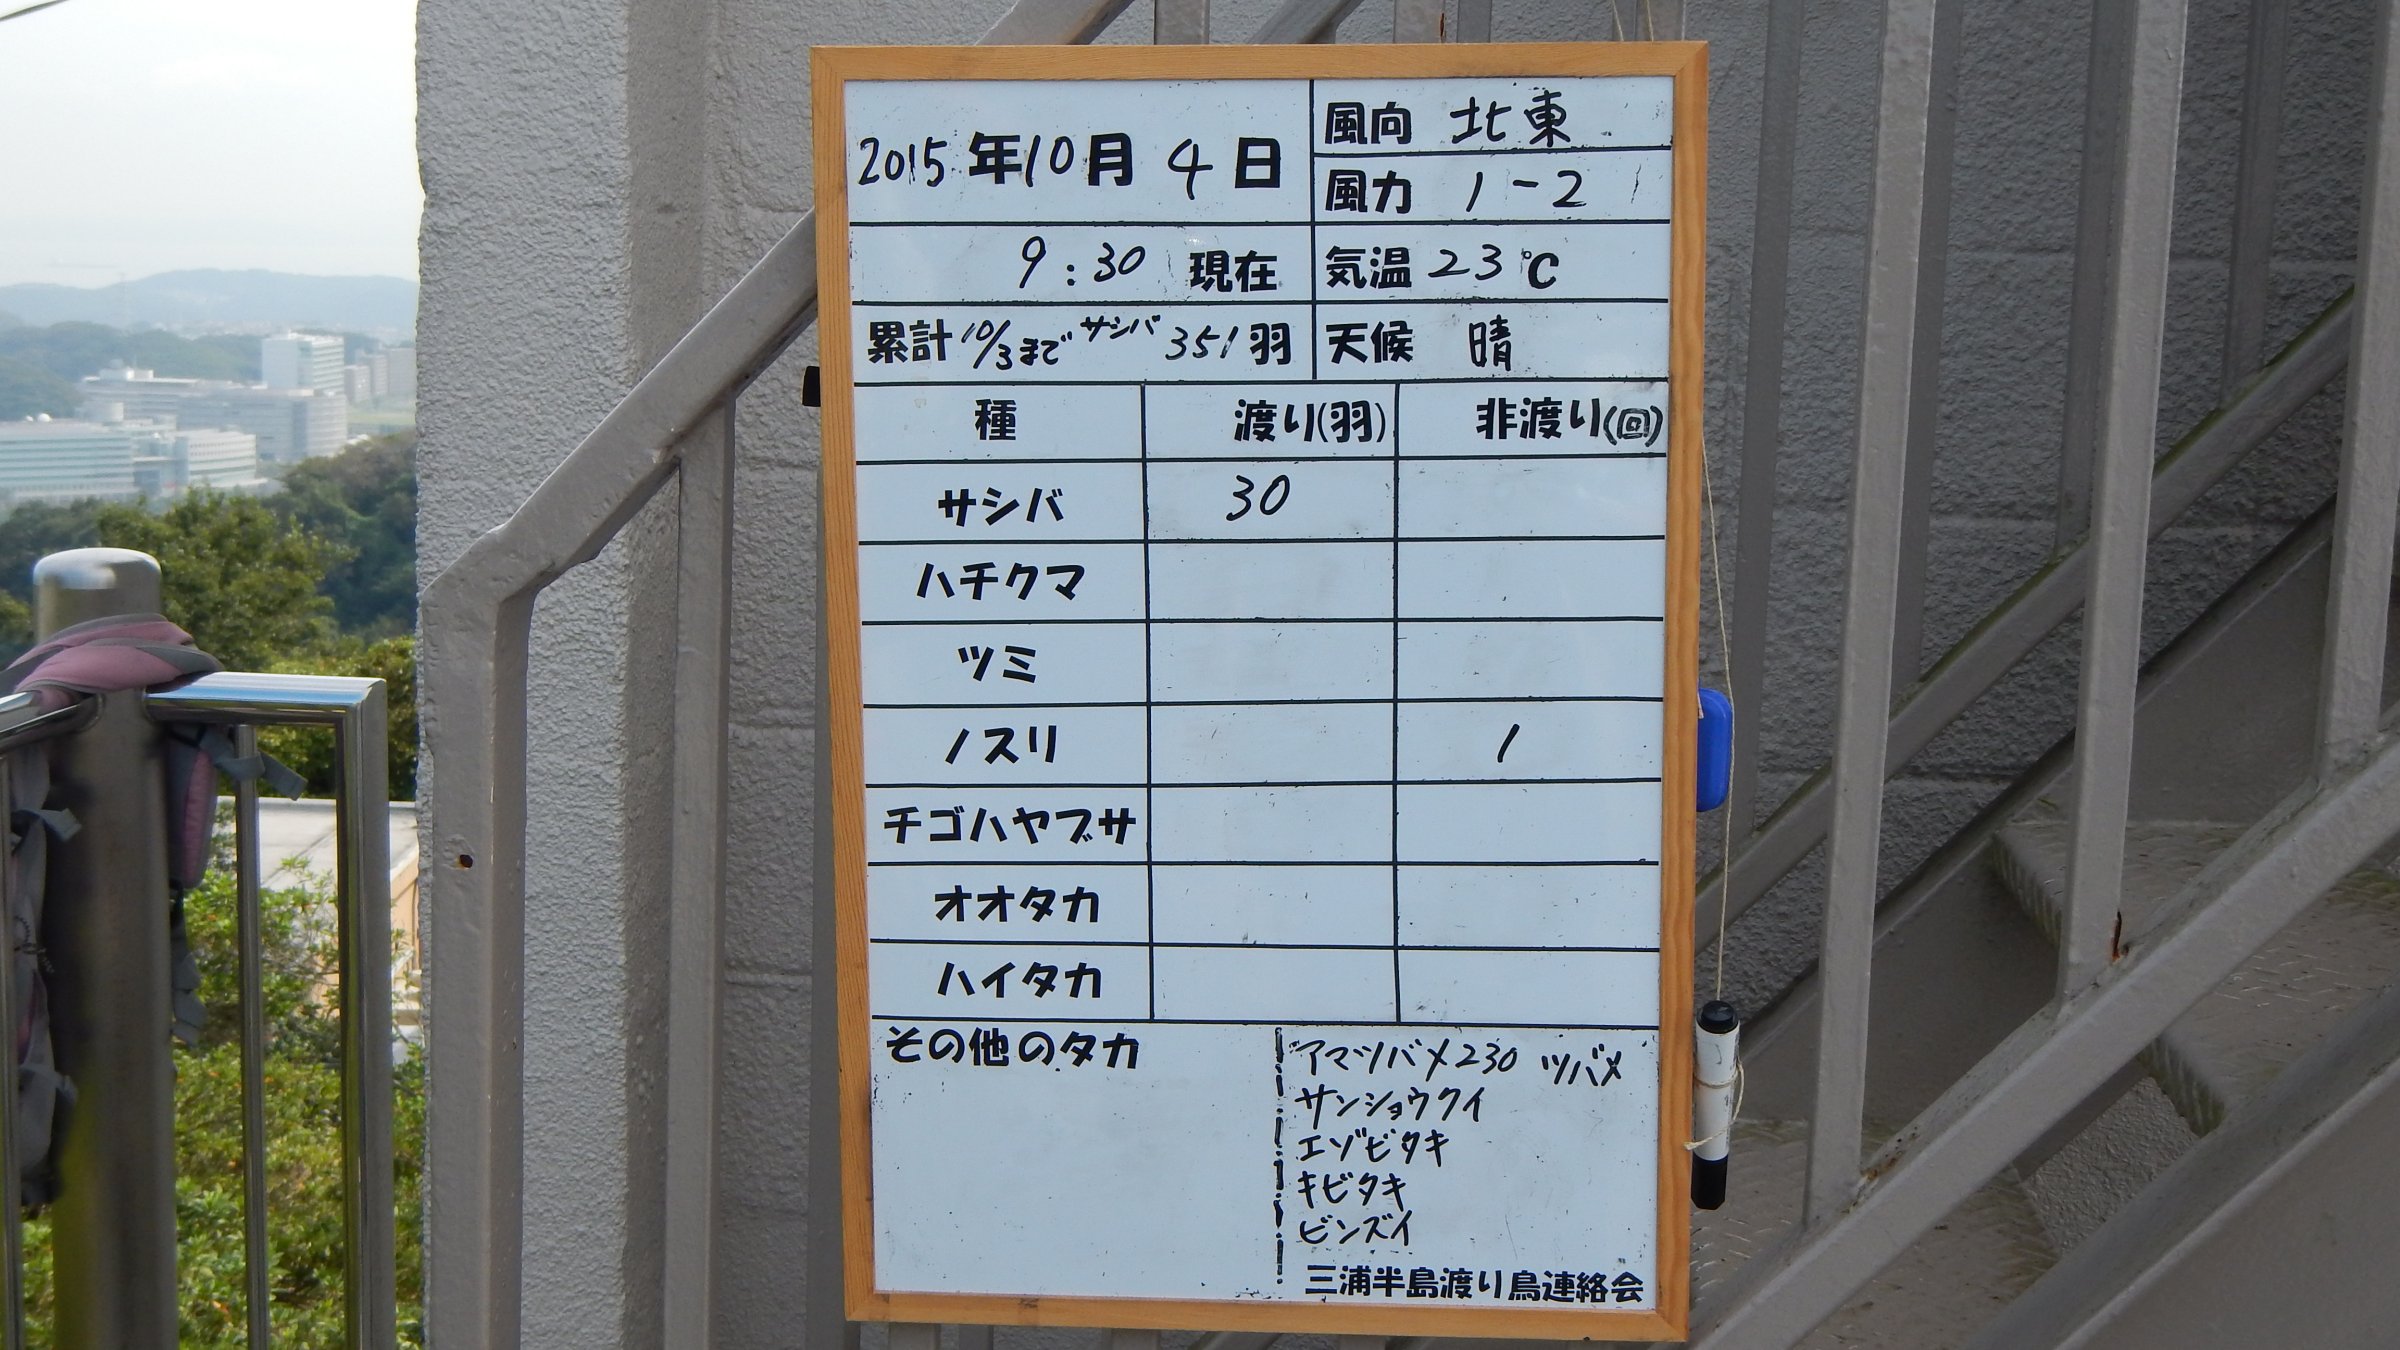 2015年10月4日
風向 北東
風力 1-2
9:30 現在
気温 23℃
累計 10/3まで サシバ 351羽
天候 晴
種 渡り(羽) 非渡り(回)
サシバ 30
ハチクマ
ツミ
ノスリ 1
チゴハヤブサ
オオタカ
ハイタカ
その他のタカ
アマツバメ230 ツバメ
サンショウクイ
エゾビタキ
キビタキ
ビンズイ
三浦半島渡り鳥連絡会